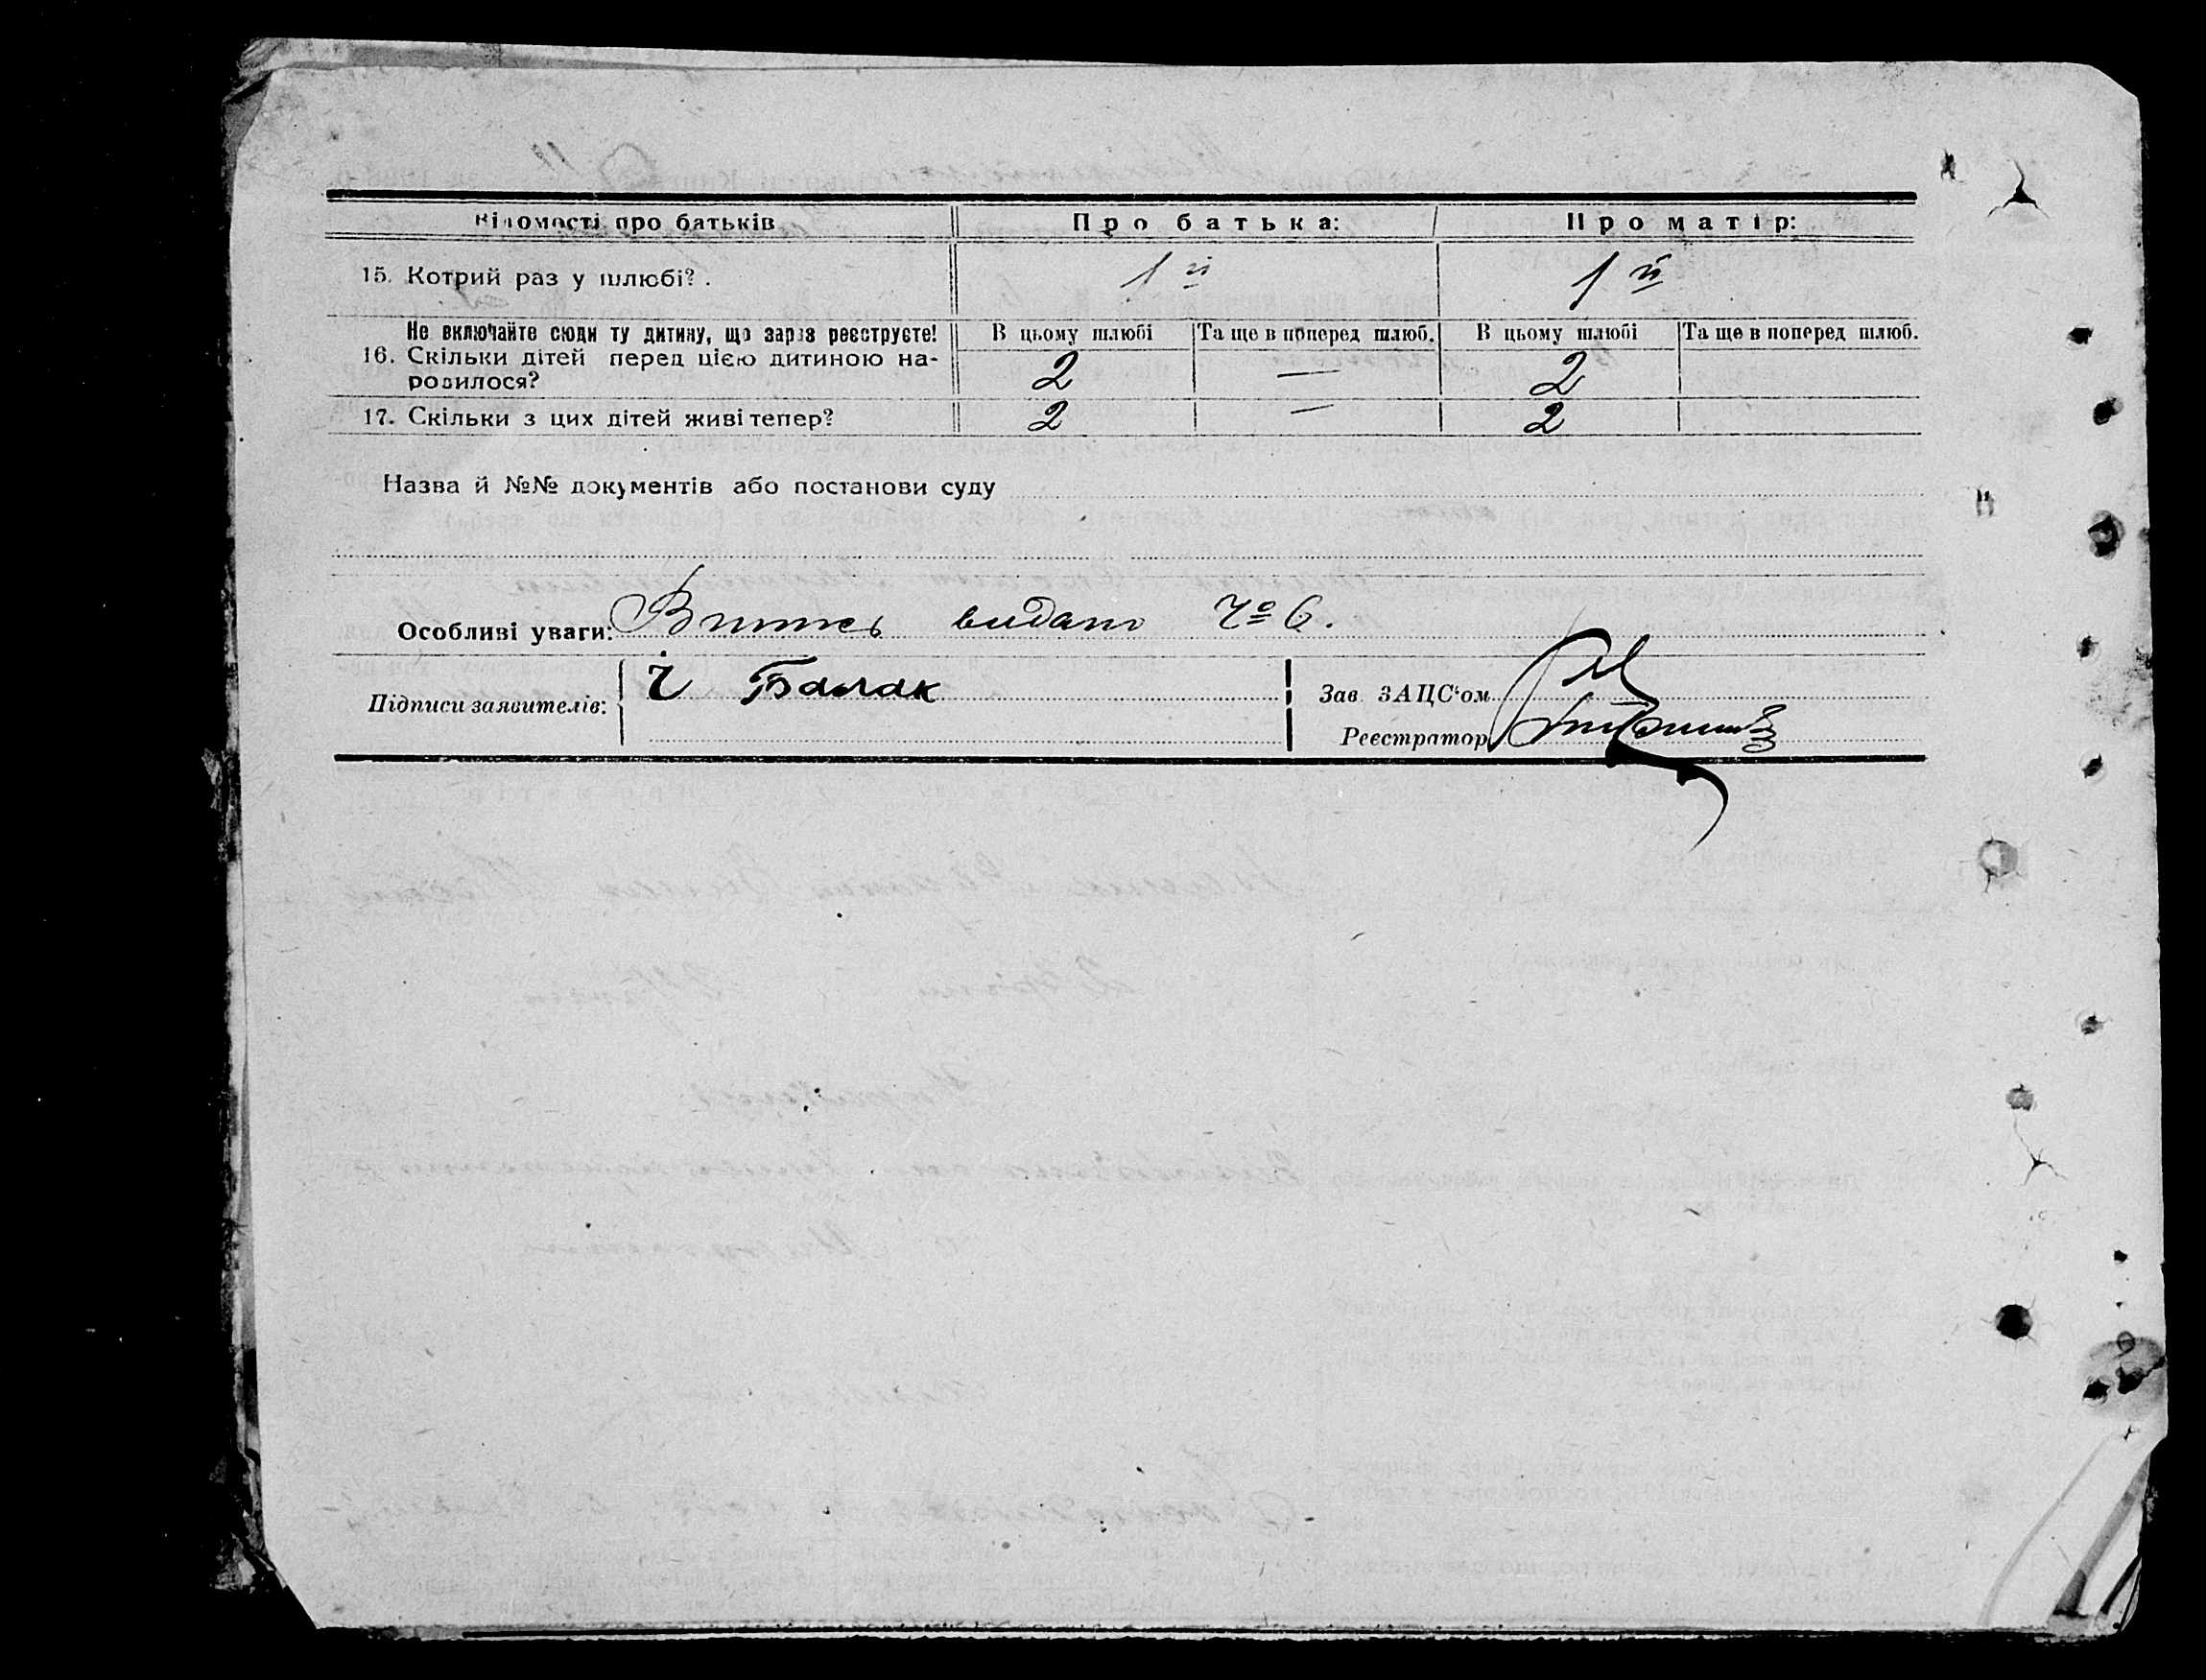 Відомості про батьків Про батька: Про матір:
15. Котрий раз у шлюбі? . 1й 1й
Не включайте сюди ту дитину, що зараз реєструєте! В цьому шлюбі Та ще в поперед шлюб. В цьому шлюбі Та ще в поперед шлюб.
16. Скільки дітей перед цією дитиною на-
родилося? 2 — 2
17. Скільки з цих дітей живі тепер? 2 — 2
Назва й №№ документів або постанови суду
Особливі уваги: Витяг видано № 6.
Підписи заявителів: Балак
Зав. ЗАЦС'ом
Реєстратор